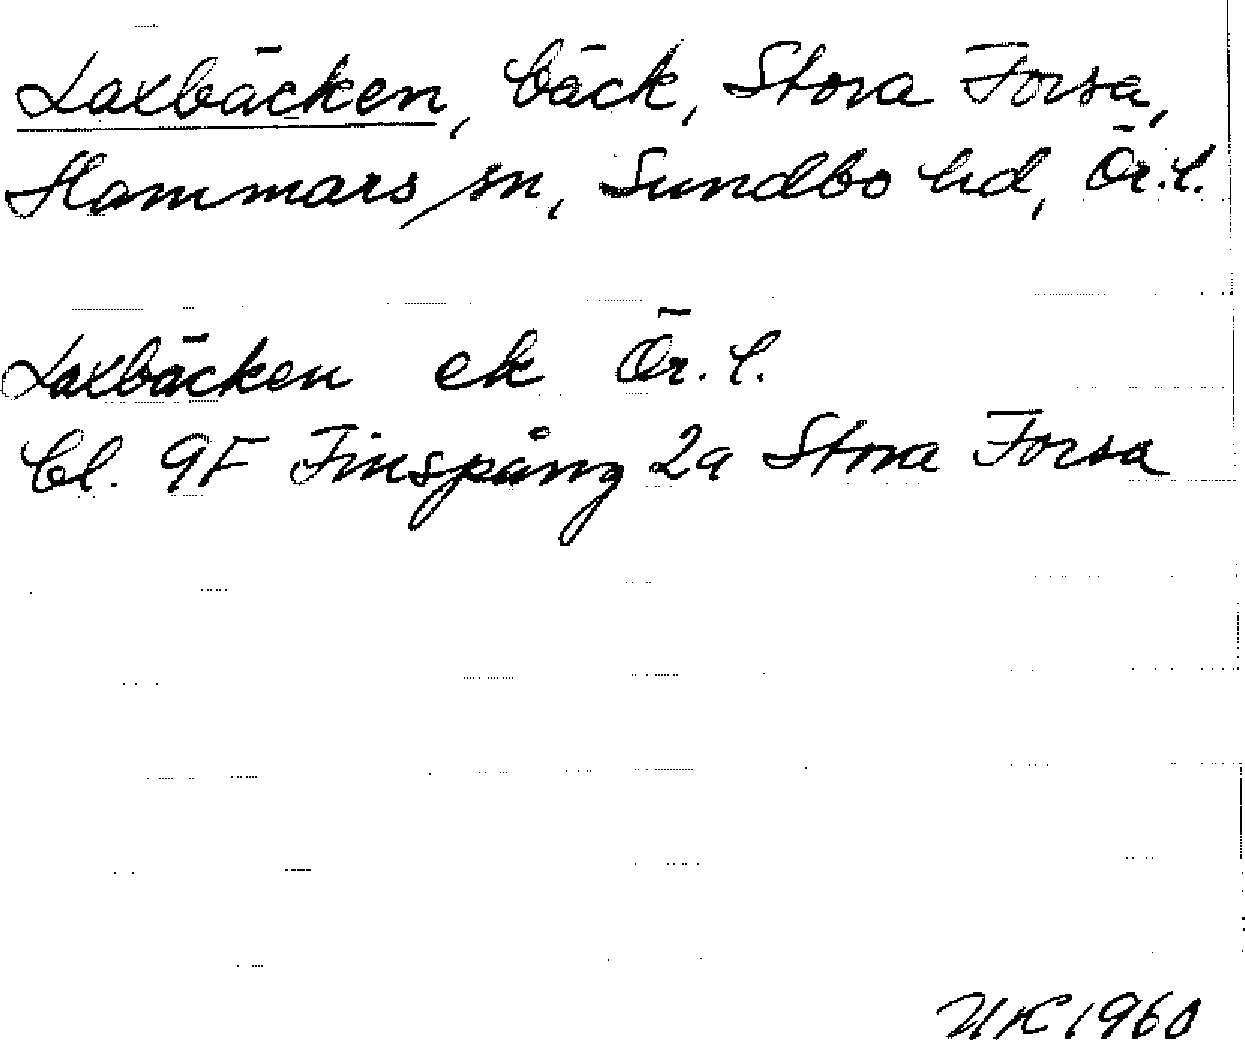 Laxbäcken, bäck, Stora Forsa,
Hammars sn, Sundbo hd, Ör.l.
Laxbäcken ek Ör.l.
Bl. 9F Finspång 2a Stora Forsa
UK 1960